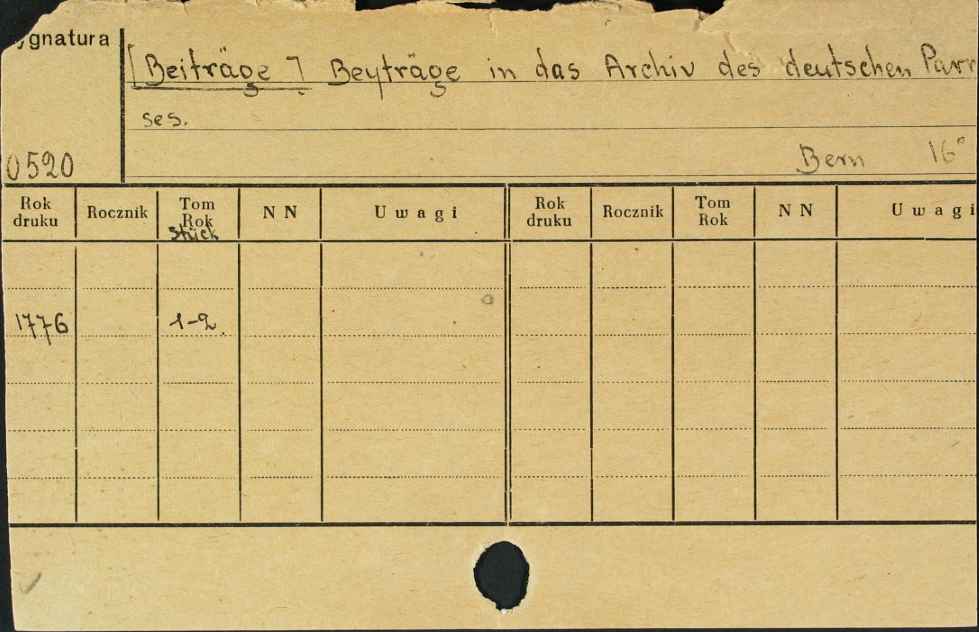 ygnatura
[Beiträge] Beyträge in das Archiv des deutschen Parr
ses.
0520
Bern 16°
Rok druku Rocznik Tom Rok Stück N N Uwagi Rok druku Rocznik Tom Rok N N Uwagi
1776 1-2.